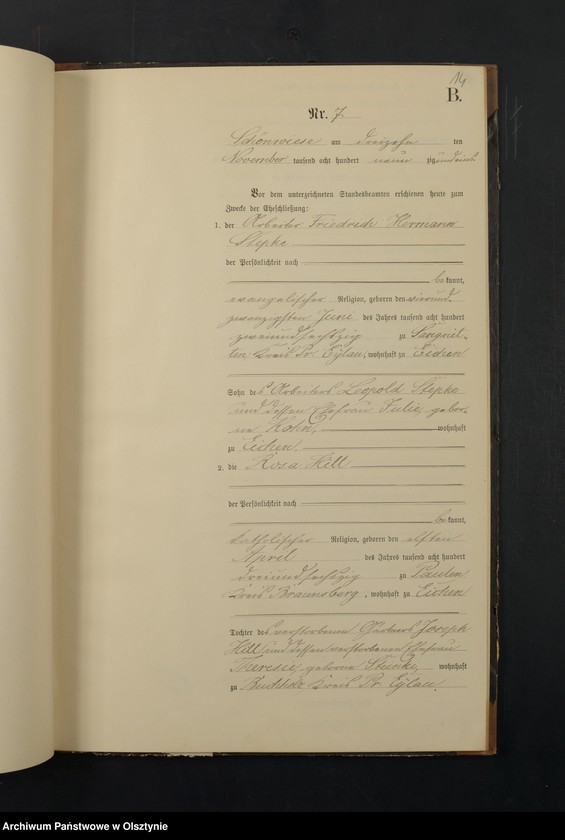 14
B.
Nr. 7
Schönwiese am dreizehn ten
November tausend acht hundert neun zig und
Vor dem unterzeichneten Standesbeamten erschienen heute zum
Zwecke der Eheschließung:
1. der Arbeiter Friedrich Hermann
Stepke
der Persönlichkeit nach
bekannt,
evangelischer Religion, geboren den vierund
zwanzigsten Juni des Jahres tausend acht hundert
zweiundsechszig zu
Kreis Pr. Eylau, wohnhaft zu Eichen
Sohn des Arbeiters Leopold Stepke
und dessen Ehefrau Julie, gebor-
ne Kohn, wohnhaft
zu Eichen
2. die Rosa Hill
der Persönlichkeit nach
bekannt,
katholischer Religion, geboren den elften
April des Jahres tausend acht hundert
dreiundsechszig zu Paulen
Kreis Braunsberg, wohnhaft zu Eichen
Tochter des verstorbenen Gärtners Joseph
Hill und dessen verstorbenen Ehefrau
Theresie, geborne wohnhaft
zu Kreis Pr. Eylau.
Archiwum Państwowe w Olsztynie